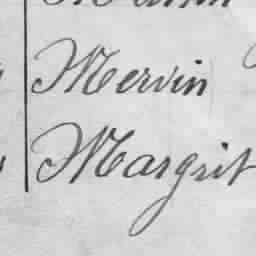 Mervin
Margrit